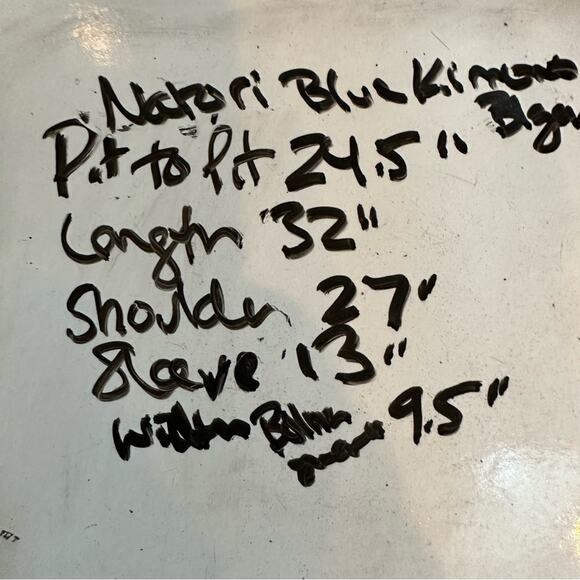 Natori Blue Kimono
Pit to Pit 24.5"
Length 32"
Shoulder 27"
Sleeve 13"
9.5"